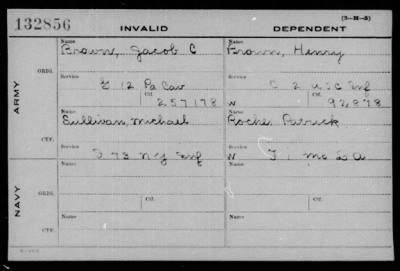 132856 INVALID DEPENDENT (3—H—5)
Name Name
Brown, Jacob C Brown, Henry
ORIG.
Service Service
G 12 Pa Cav C 2 U S C Inf
Ctf. Ctf.
257178 W 92878
ARMY
Name Name
Sullivan, Michael Roche Patrick
CTF.
Service Service
73 N Y Inf W 1 Mo L A
Name Name
ORIG.
Service Ctf. Service Ctf.
NAVY
Name Name
CTF.
Service Service